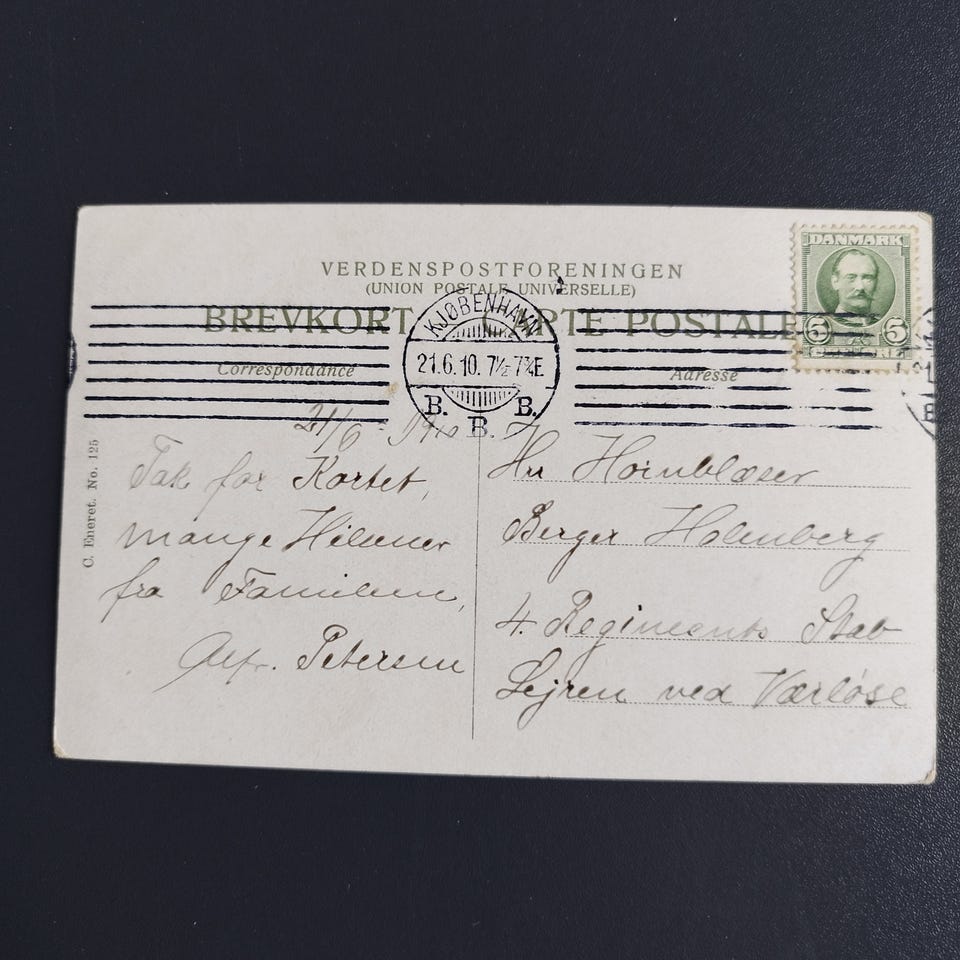 VERDENSPOSTFORENINGEN
(UNION POSTALE UNIVERSELLE)
BREVKORT CARTE POSTALE
DANMARK
5 5
KJØBENHAVN
21.6.10. 7½-7¾E.
B. B.
B.
Correspondance
Adresse
21/6 - 1910
Tak for Kortet,
mange Hilsener
fra Familien,
Alfr. Petersen
Hr Hornblæser
Berger Holmberg
4. Regiments Stab
Lejren ved Værløse
C. Eneret. No. 125